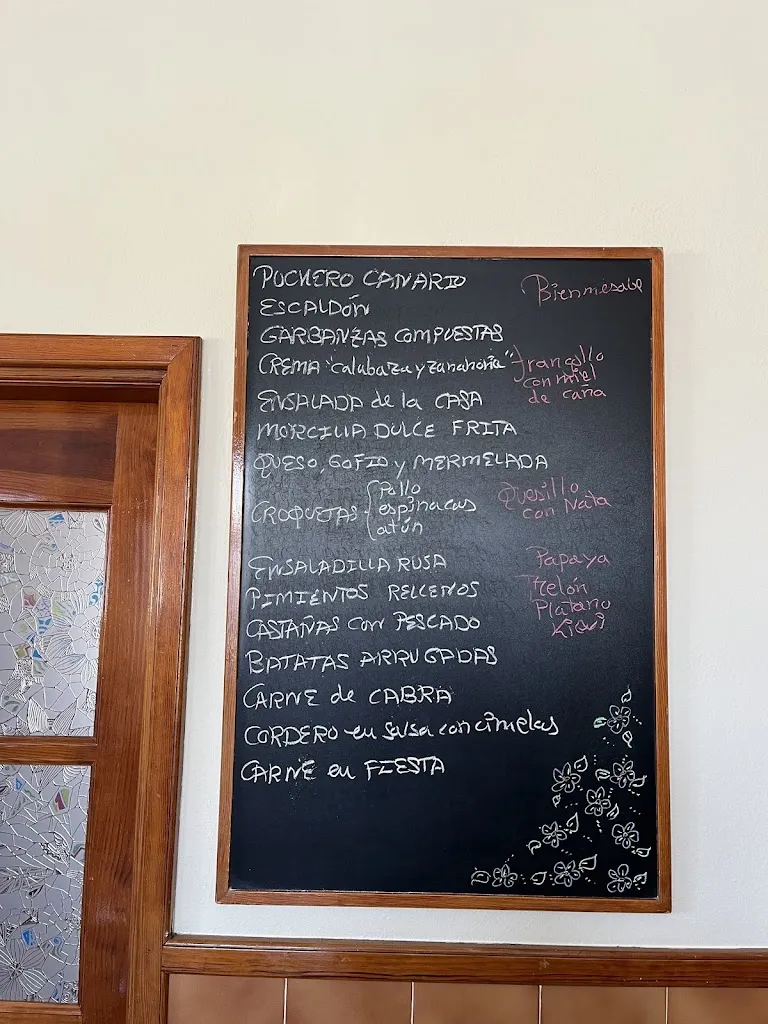 PUCHERO CANARIO
ESCALDÓN
GARBANZAS COMPUESTAS
CREMA "calabaza y zanahoria"
ENSALADA de la CASA
MORCILLA DULCE FRITA
QUESO, GOFIO y MERMELADA
CROQUETAS
Pollo
espinacas
atún
ENSALADILLA RUSA
PIMIENTOS RELLENOS
CASTAÑAS con PESCADO
BATATAS ARRUGADAS
CARNE de CABRA
CORDERO en salsa con cirnelas
CARNE en FIESTA
Bienmesabe
frangollo
con miel
de caña
Quesillo
con Nata
Papaya
Melón
Platano
Kiwi